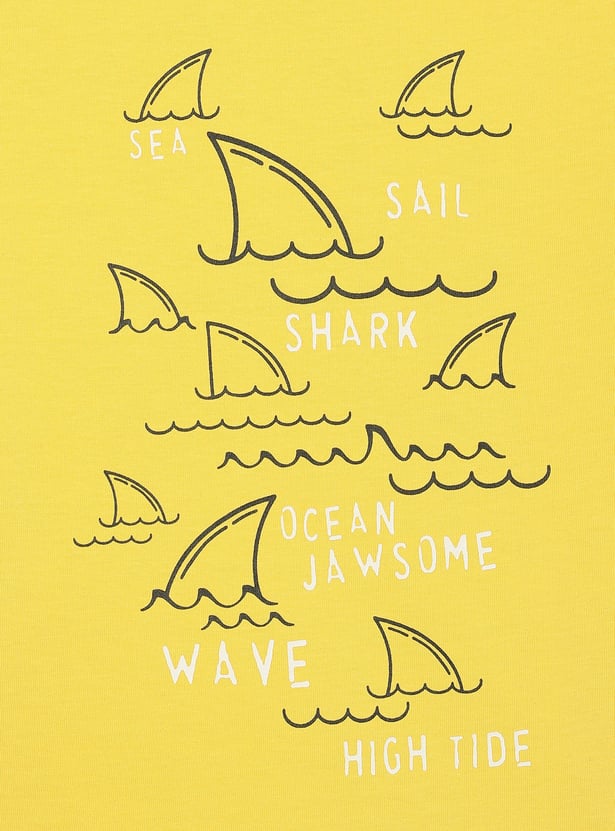 SEA
SAIL
SHARK
OCEAN
JAWSOME
WAVE
HIGH TIDE